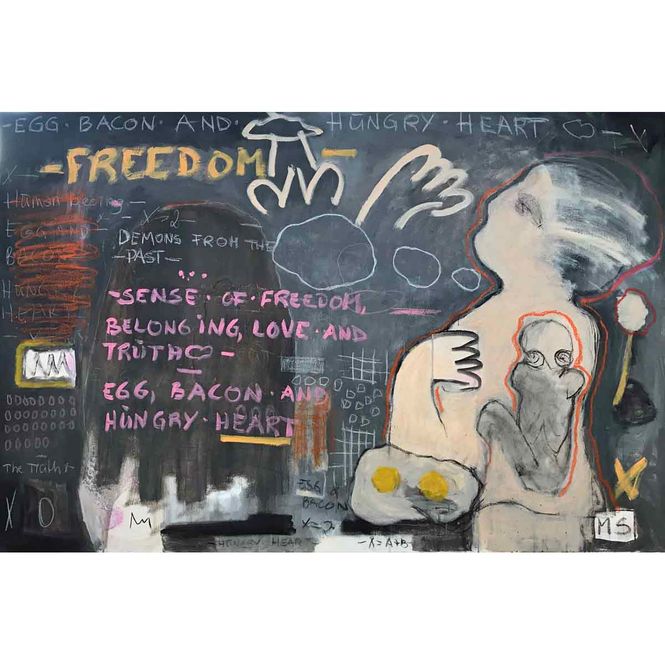 -EGG·BACON·AND· HŪNGRY·HEART
-FREEDOM-
Human feeling-
EGG AND
BACON
HUNGRY
HEART
X=2-
DEMONS FROM THE
-PAST-
-SENSE·OF·FREEDOM,
BELONGING, LOVE·AND
TRUTH
EGG, BACON·AND
HŪNGRY·HEART
The Truth-
X O
EGG &
BACON
X=2
-HŪNGRY HEART
-X=A+B-
MS